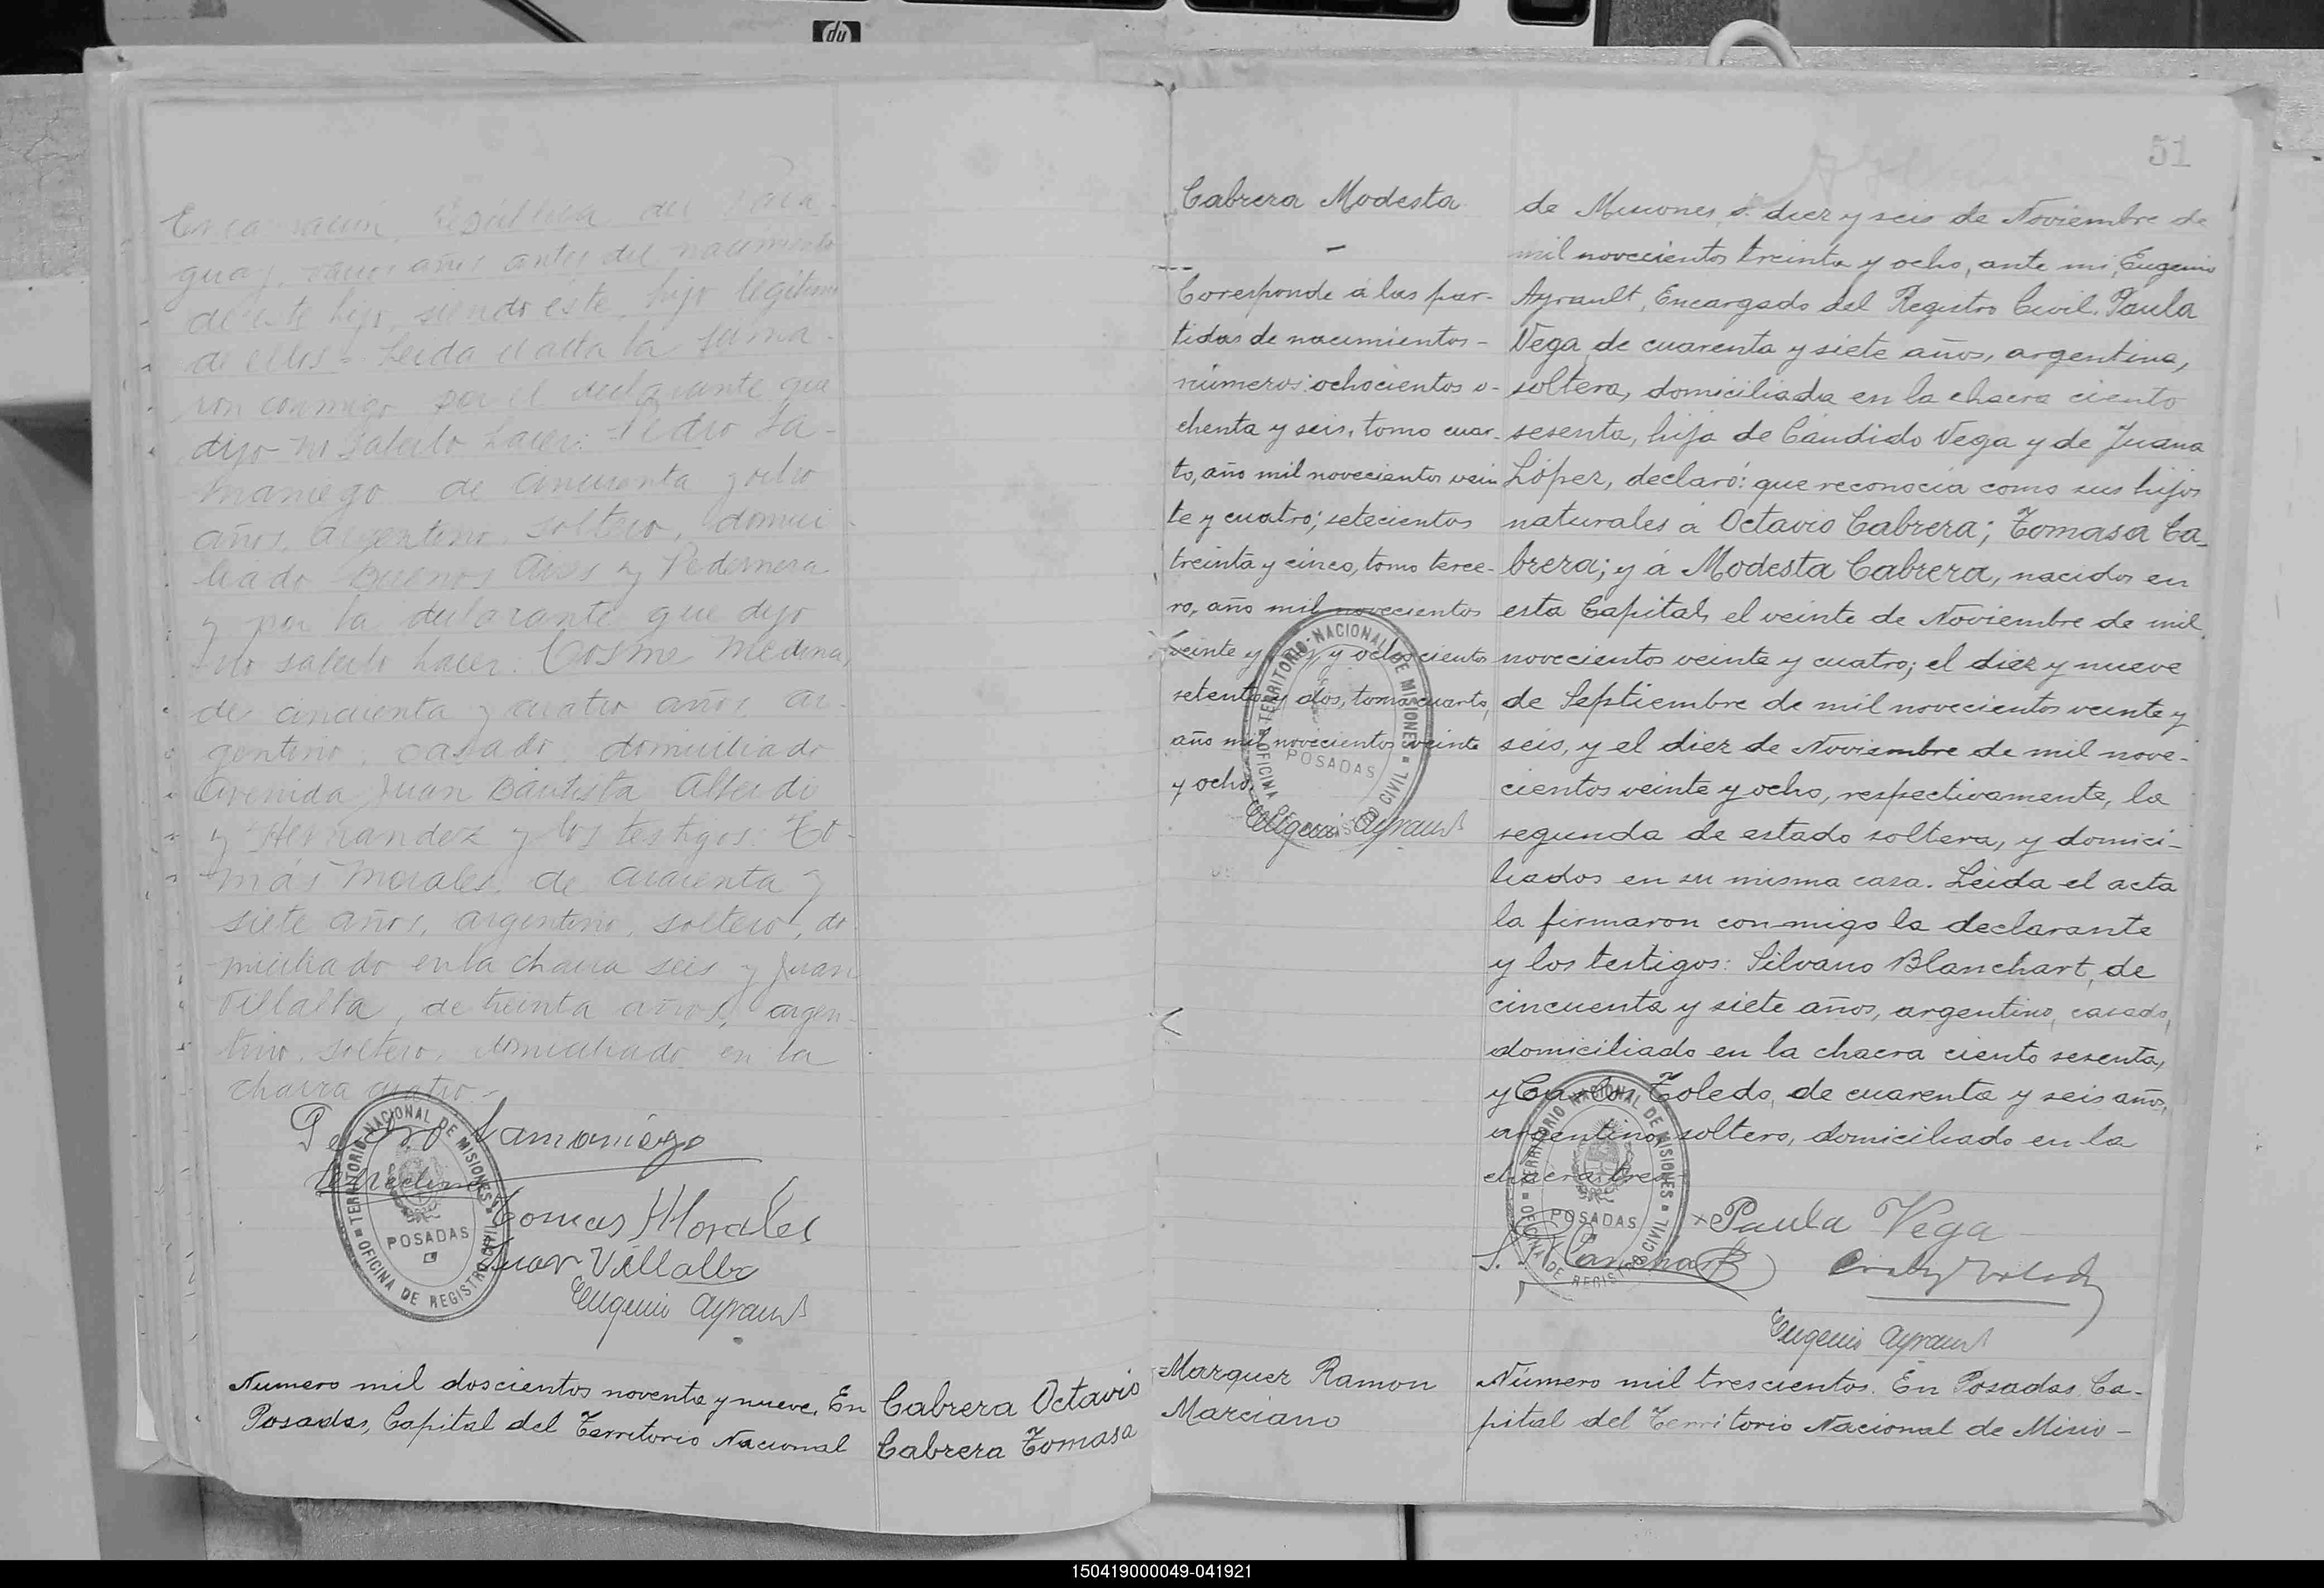 Encarnación, República del Para-
guay, varios años antes del nacimiento
de este hijo, siendo este, hijo legítimo
de ellos = Leida el acta la firma-
ron conmigo por el declarante que
dijo no saberlo hacer: Pedro Sa-
maniego de cincuenta y ocho
años, argentino, soltero, domici-
liado Buenos Aires y Pedernera
y por la declarante que dijo
no saberlo hacer: Cosme Medina,
de cincuenta y cuatro años, ar-
gentino, casado, domiciliado
Avenida Juan Bautista Alberdi
y Hernandez y los testigos: To-
más Morales, de cuarenta y
siete años, argentino, soltero, do-
miciliado en la chacra seis y Juan
Villalba, de treinta años, argen-
tino, soltero, domiciliado en la
chacra cuatro.-
Pedro Samaniego
Medina
Tomas Morales
Juan Villalba
Eugenio Ayrault
TERRITORIO NACIONAL DE MISIONES
POSADAS
OFICINA DE REGISTRO CIVIL
Numero mil doscientos noventa y nueve. En
Posadas, Capital del Territorio Nacional
Cabrera Octavio
Cabrera Tomasa
51
Cabrera Modesta
-
Coresponde á las par-
tidas de nacimientos -
números: ochocientos o-
chenta y seis, tomo cuar-
to, año mil novecientos vein
te y cuatro; setecientos
treinta y cinco, tomo terce-
ro, año mil novecientos
veinte y seis y ochocientos
setenta y dos, tomo cuarto,
año mil novecientos veinte
y ocho.
TERRITORIO NACIONAL DE MISIONES
POSADAS
OFICINA DE REGISTRO CIVIL
Eugenio Ayrault
de Misiones, á diez y seis de Noviembre de
mil novecientos treinta y ocho, ante mi, Eugenio
Ayrault, Encargado del Registro Civil. Paula
Vega de cuarenta y siete años, argentina,
soltera, domiciliada en la chacra ciento
sesenta, hija de Cándido Vega y de Juana
López, declaró: que reconocía como sus hijos
naturales á Octavio Cabrera; Tomasa Ca-
brera; y á Modesta Cabrera, nacidos en
esta Capital, el veinte de Noviembre de mil
novecientos veinte y cuatro; el diez y nueve
de Septiembre de mil novecientos veinte y
seis, y el diez de Noviembre de mil nove-
cientos veinte y ocho, respectivamente, la
segunda de estado soltera, y domici-
liados en su misma casa. Leida el acta
la firmaron conmigo la declarante
y los testigos: Silvano Blanchart, de
cincuenta y siete años, argentino, casado,
domiciliado en la chacra ciento sesenta,
y Carlos Toledo, de cuarenta y seis años,
argentino, soltero, domiciliado en la
chacra tres.
TERRITORIO NACIONAL DE MISIONES
POSADAS
OFICINA DE REGISTRO CIVIL
Paula Vega
Eugenio Ayrault
Marquez Ramon
Marciano
Número mil trescientos. En Posadas. Ca-
pital del Territorio Nacional de Misio-
150419000049-041921